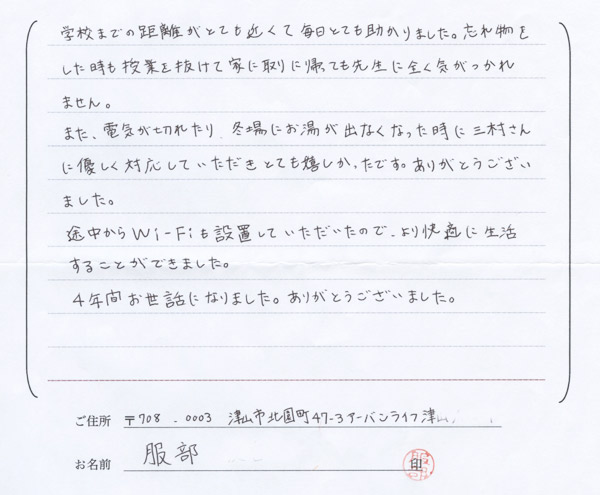 学校までの距離がとても近くて毎日とても助かりました。忘れ物を
した時も授業を抜けて家に取りに帰っても先生に全く気がつかれ
ません。
また、電気が切れたり、冬場にお湯が出なくなった時に三村さん
に優しく対応していただきとても嬉しかったです。ありがとうござい
ました。
途中からWi-Fiも設置していただいたので、より快適に生活
することができました。
4年間お世話になりました。ありがとうございました。
ご住所 〒708-0003 津山市北園町47-3アーバンライフ津山
お名前 服部 印